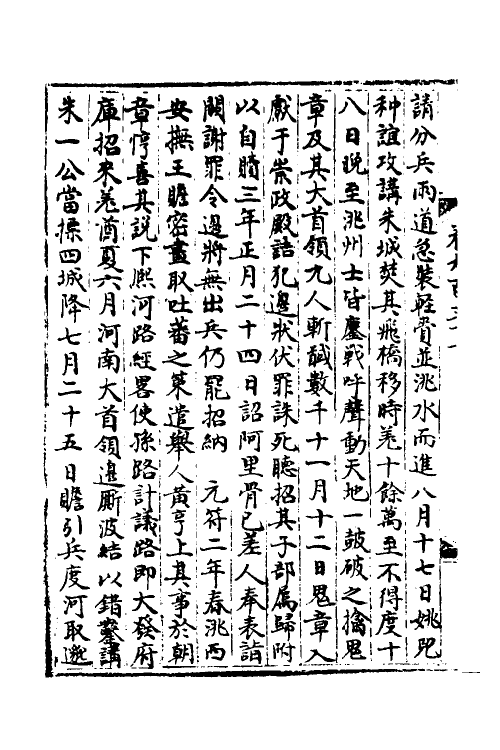 請分兵兩道急裝輕賫並洮水而進八月十七日姚兕
种誼攻講朱城焚其飛橋移時羗十餘萬至不得度十
八日晚至洮州士皆鏖戰呼聲動天地一鼓破之擒鬼
章及其大首領九人斬馘數千十一月十二日鬼章入
獻于崇政殿詰犯邊狀伏罪誅死聽招其子部属歸附
以自贖三年正月二十四日詔阿里骨已差人奉表詣
闕謝罪令邊將無出兵仍罷招納　元符二年春洮西
安撫王贍密畫取吐蕃之策遣舉人黄亨上其事於朝
章惇喜其說下熈河路經畧使孫路計議路即大發府
庫招來羗酋夏六月河南大首領邊厮波結以錯鑿講
朱一公當摽四城降七月二十五日贍引兵度河取邈